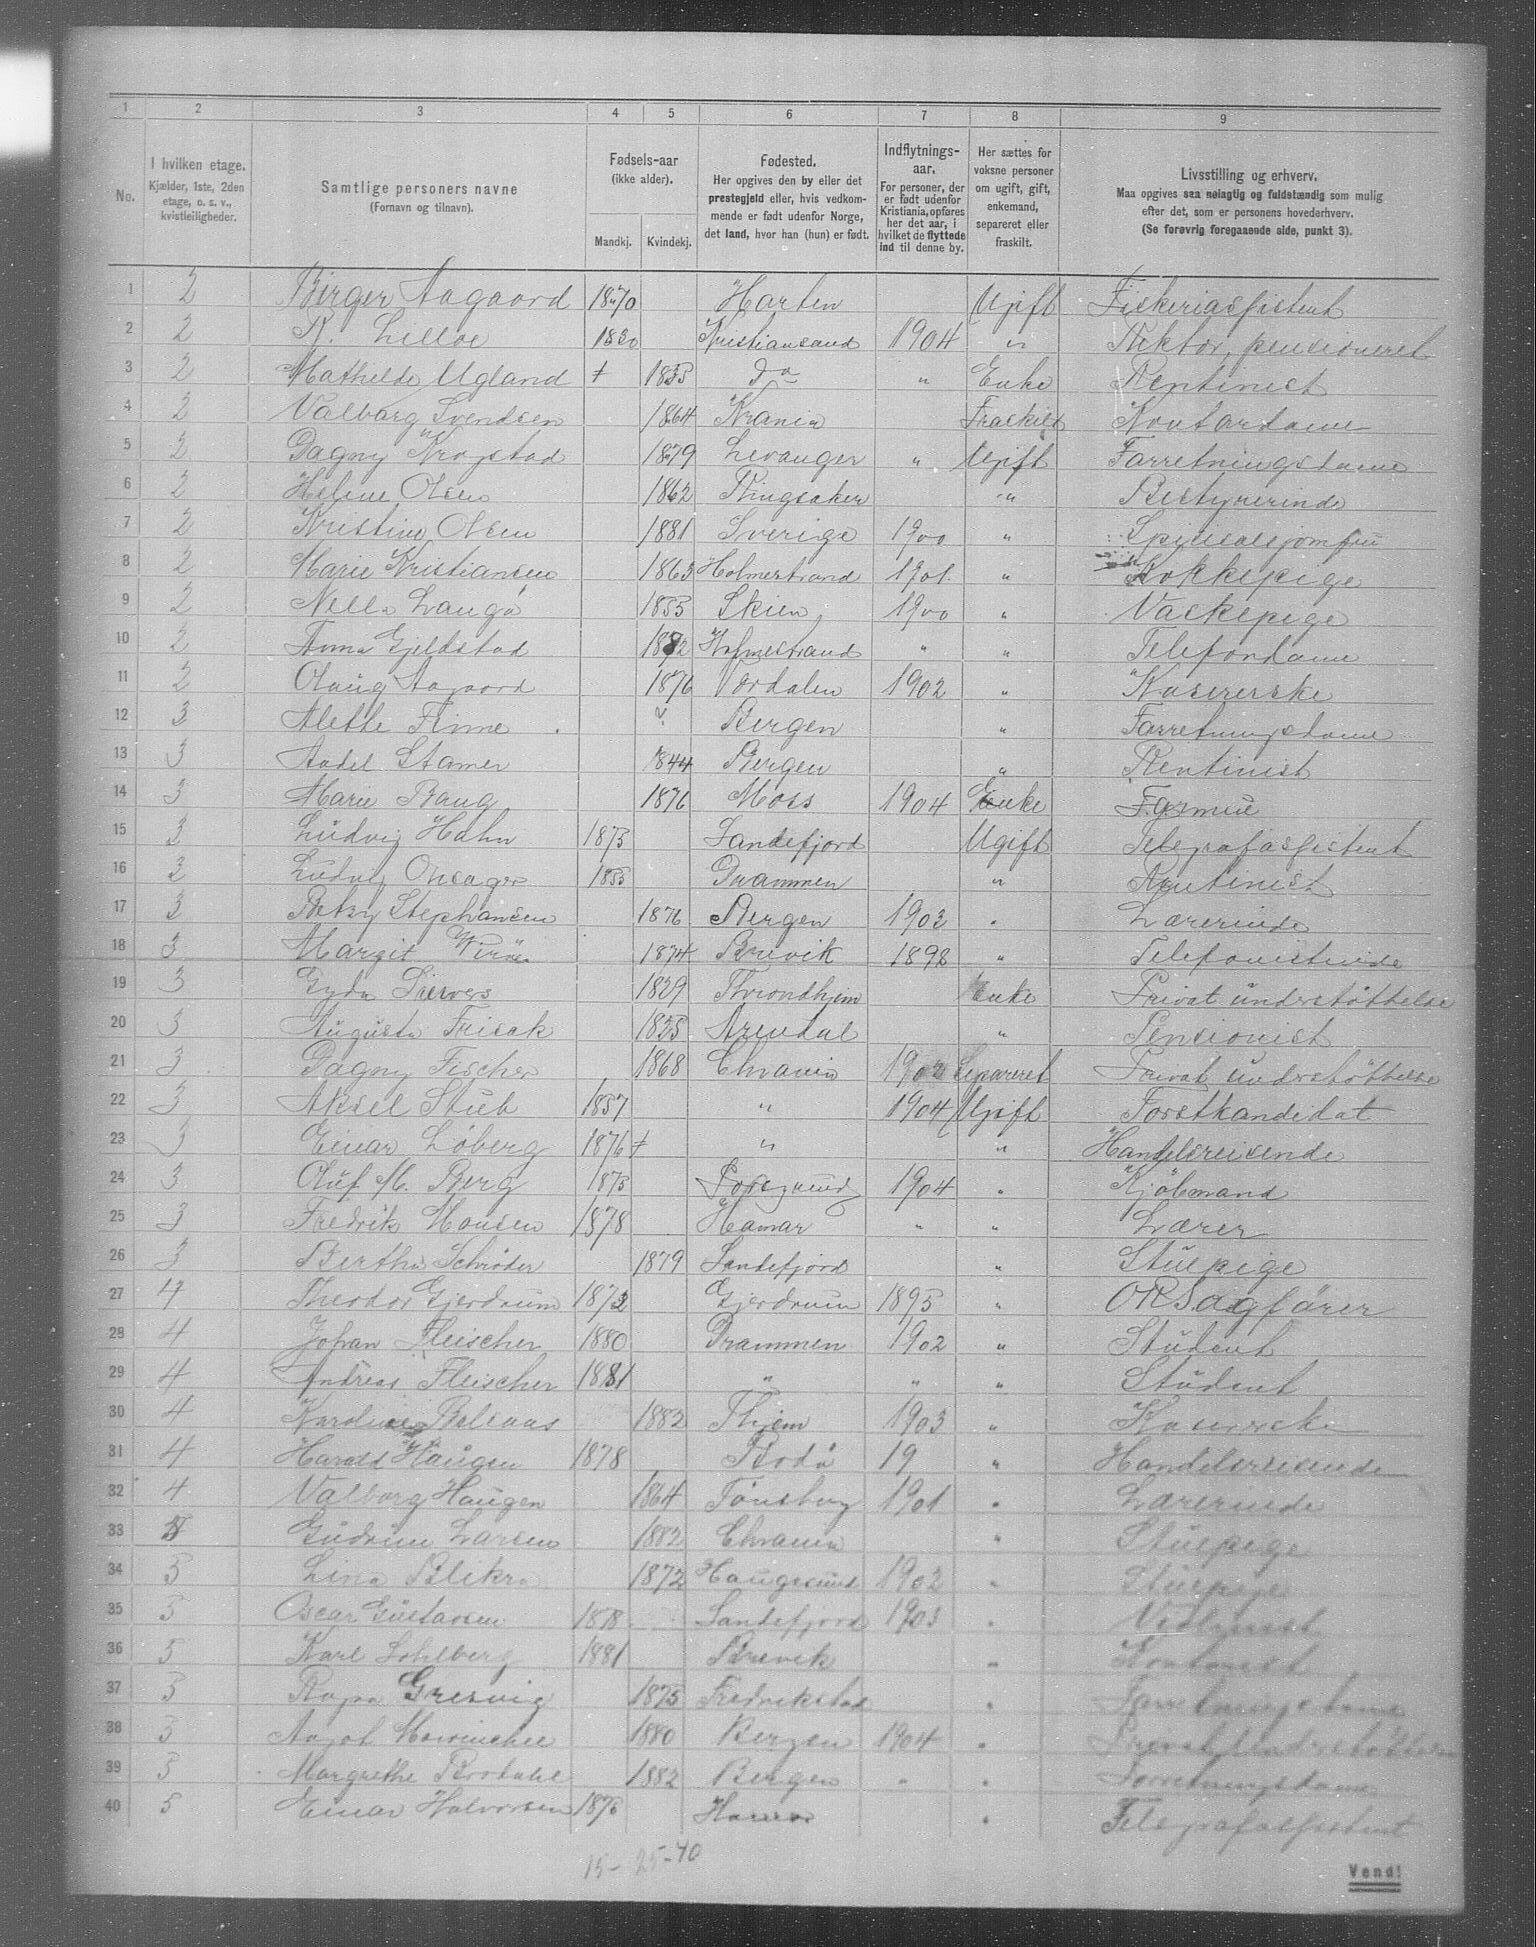 1 2 3 4 5 6 7 8 9
No. | I hvilken etage. Kjælder, 1ste, 2den etage, o. s. v., kvistleiligheder. | Samtlige personers navne (Fornavn og tilnavn). | Fødsels-aar (ikke alder). Mandkj. | Kvindekj. | Fødested. Her opgives den by eller det prestegjeld eller, hvis vedkommende er født udenfor Norge, det land, hvor han (hun) er født. | Indflytnings-aar. For personer, der er født udenfor Kristiania, opføres her det aar, i hvilket de flyttede ind til denne by. | Her sættes for voksne personer om ugift, gift, enkemand, separeret eller fraskilt. | Livsstilling og erhverv. Maa opgives saa nøiagtig og fuldstændig som mulig efter det, som er personens hovederhverv. (Se forøvrig foregaaende side, punkt 3).
1 2 Birger Aagaard 1870 Horten Ugift Fiskeriassistent
2 2 R. Lilloe 1830 Kristiansand 1904 " Rektor, pensioneret
3 2 Mathilde Ugland + 1835 Do " Enke Rentinist
4 2 Valborg Svendsen 1864 Krania Fraskilt Kontordame
5 2 Dagny Krogstad 1879 Levanger " Ugift Farretningsdame
6 2 Helene Olsen 1862 Ringsaker " Bestyrerinde
7 2 Kristine Olsen 1881 Sverige 1900 " Spisesalsjomfru
8 2 Marie Kristiansen 1863 Holmestrand 1901 " Kokkepige
9 2 Nella Langö 1855 Skien 1900 " Vaskepige
10 2 Anna Gjeldstad 1882 Holmestrand " " Telefondame
11 2 Olaug Aagaard 1876 Værdalen 1902 " Kasererske
12 3 Alette Finne ? Bergen " Farretningsdame
13 3 Aadel Stamer 1844 Bergen " Rentinist
14 3 Marie Baug 1876 Moss 1904 Enke
15 3 Ludvig Hahn 1875 Sandefjord Ugift Telegrafassistent
16 3 Ludvig Onsager 1855 Drammen " Rentinist
17 3 Betsy Stephansen 1876 Bergen 1903 " Lærerinde
18 3 Margit Wirøe 1874 Brevik 1898 " Telefonistinde
19 3 Gyda Sievers 1829 Throndhjem Enke Privat understøttelse
20 3 Augusta Frisak 1825 Arendal " Pensionist
21 3 Dagny Fischer 1868 Chrania 1902 Separeret Privat understøttelse
22 3 Aksel Stub 1857 " 1904 Ugift Forstkandidat
23 3 Einar Løberg 1876 + " " Handelsreisende
24 3 Oluf M. Berg 1875 Porsgrund 1904 " Kjøbmand
25 3 Fredrik Monsen 1878 Hamar " " Lærer
26 3 Bertha Schrøder 1879 Sandefjord " Stuepige
27 4 Theodor Gjerdrum 1873 Gjerdrum 1895 " ORSagfører
28 4 Johan Fleischer 1880 Drammen 1902 " Student
29 4 Andreas Fleischer 1881 " " " Student
30 4 Karoline Belsaas 1882 Thjem 1903 " Kasererske
31 4 Harald Haugen 1878 Bodø 19 " Handelsreisende
32 4 Valborg Haugen 1864 Tönsberg 1901 " Lærerinde
33 Gudrun Larsen 1882 Chrania " Stuepige
34 5 Lina Blikra 1872 Haugesund 1902 " Stuepige
35 5 Oscar Gustavsen 1878 Sandefjord 1903 " Violinist
36 5 Karl Sohlberg 1881 Brevik " Kontorist
37 5 Gresvig 1875 Fredrikstad " Farretningsdame
38 5 Aagot 1880 Bergen 1904 " Privat Understøttelse
39 5 Margrethe 1882 Bergen " " Forretningsdame
40 5 Einar Halvorsen 1875 " Telegrafassistent
15 - 25 - 40
Vend!